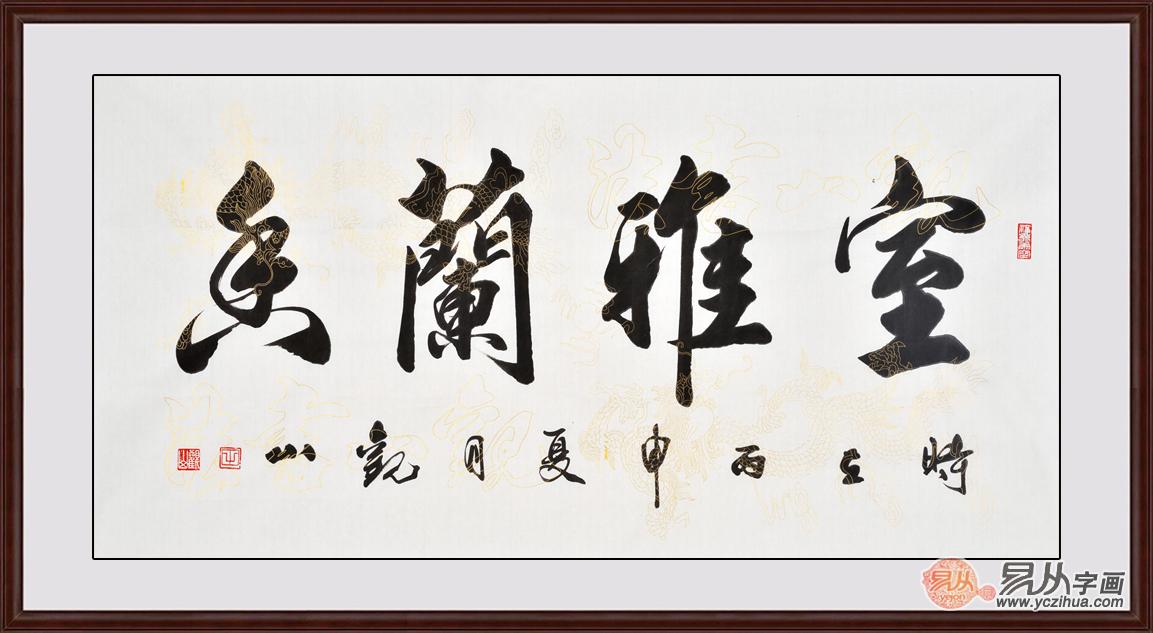 室雅蘭香
時在丙申夏月觀山
易从
yejon
易从字画
www.yczihua.com